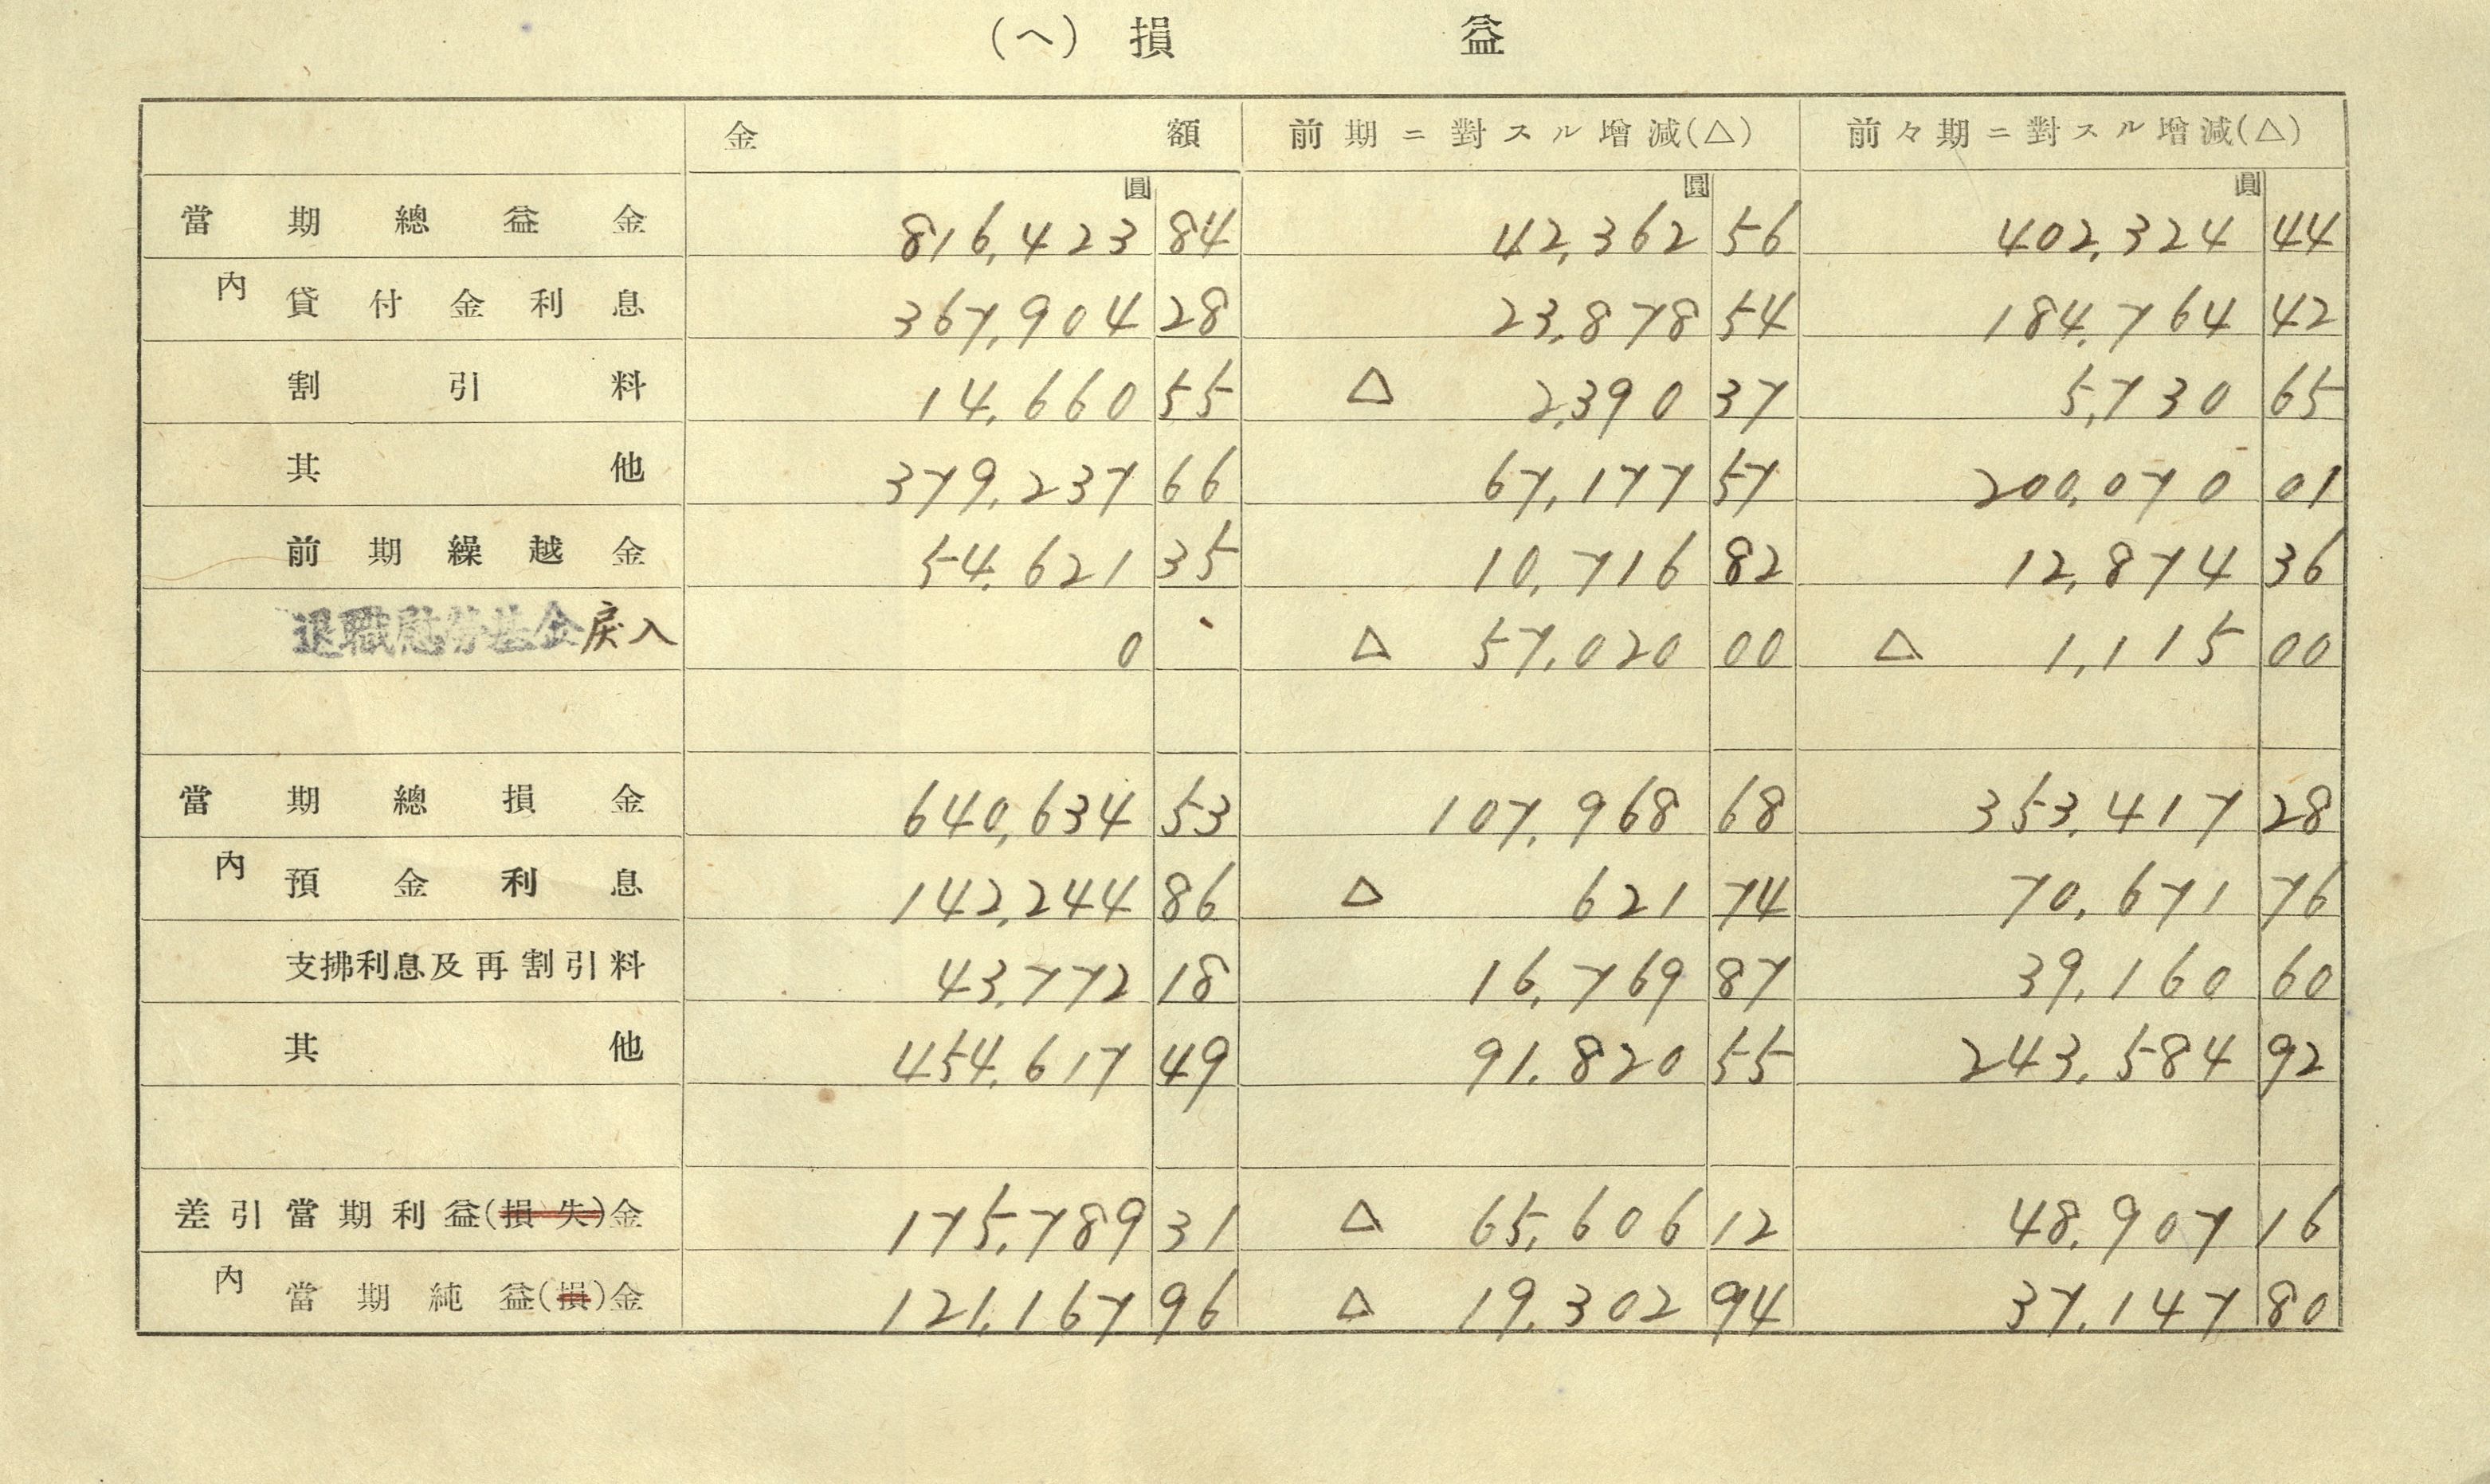 (ヘ) 損 益
金 額 前期ニ對スル增減(△) 前々期ニ對スル增減(△)
圓 圓 圓
當期總益金 816,423 84 42,362 56 402,324 44
內 貸付金利息 367,904 28 23,878 54 184,764 42
割引料 14,660 55 △ 2,390 37 5,730 65
其他 379,237 66 67,177 57 200,070 01
前期繰越金 54,621 35 10,716 82 12,874 36
退職慰勞基金戾入 0 △ 57,020 00 △ 1,115 00
當期總損金 640,634 53 107,968 68 353,417 28
內 預金利息 142,244 86 △ 621 74 70,671 76
支拂利息及再割引料 43,772 18 16,769 87 39,160 60
其他 454,617 49 91,820 55 243,584 92
差引當期利益(損失)金 175,789 31 △ 65,606 12 48,907 16
內 當期純益(損)金 121,167 96 △ 19,302 94 37,147 80